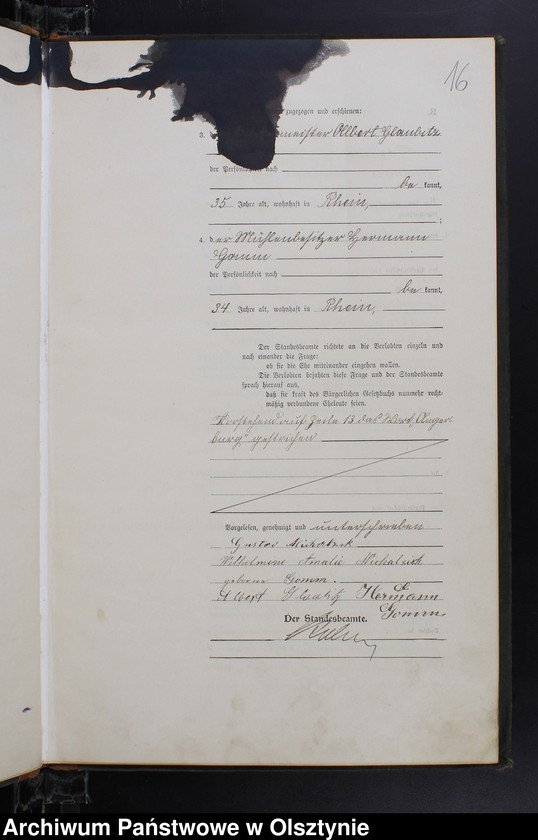 16
zugezogen und erschienen:
3. d meister Albert Glaubitz
der Persönlichkeit nach
be kannt,
35 Jahre alt, wohnhaft in Rhein,
;
4. der Mühlenbesitzer Hermann
Gomm
der Persönlichkeit nach
be kannt,
34 Jahre alt, wohnhaft in Rhein,
Der Standesbeamte richtete an die Verlobten einzeln und
nach einander die Frage:
ob sie die Ehe miteinander eingehen wollen.
Die Verlobten bejahten diese Frage und der Standesbeamte
sprach hierauf aus,
daß sie kraft des Bürgerlichen Gesetzbuchs nunmehr recht-
mäßig verbundene Eheleute seien.
Vorstehend auf Zeile 13 das Wort "Anger-
burg" gestrichen
Vorgelesen, genehmigt und unterschrieben
Gustav
Wilhelmine Amalie Michalzick
geborne Gomm.
Albert Glaubitz Hermann
Gomm
Der Standesbeamte.
Archiwum Państwowe w Olsztynie